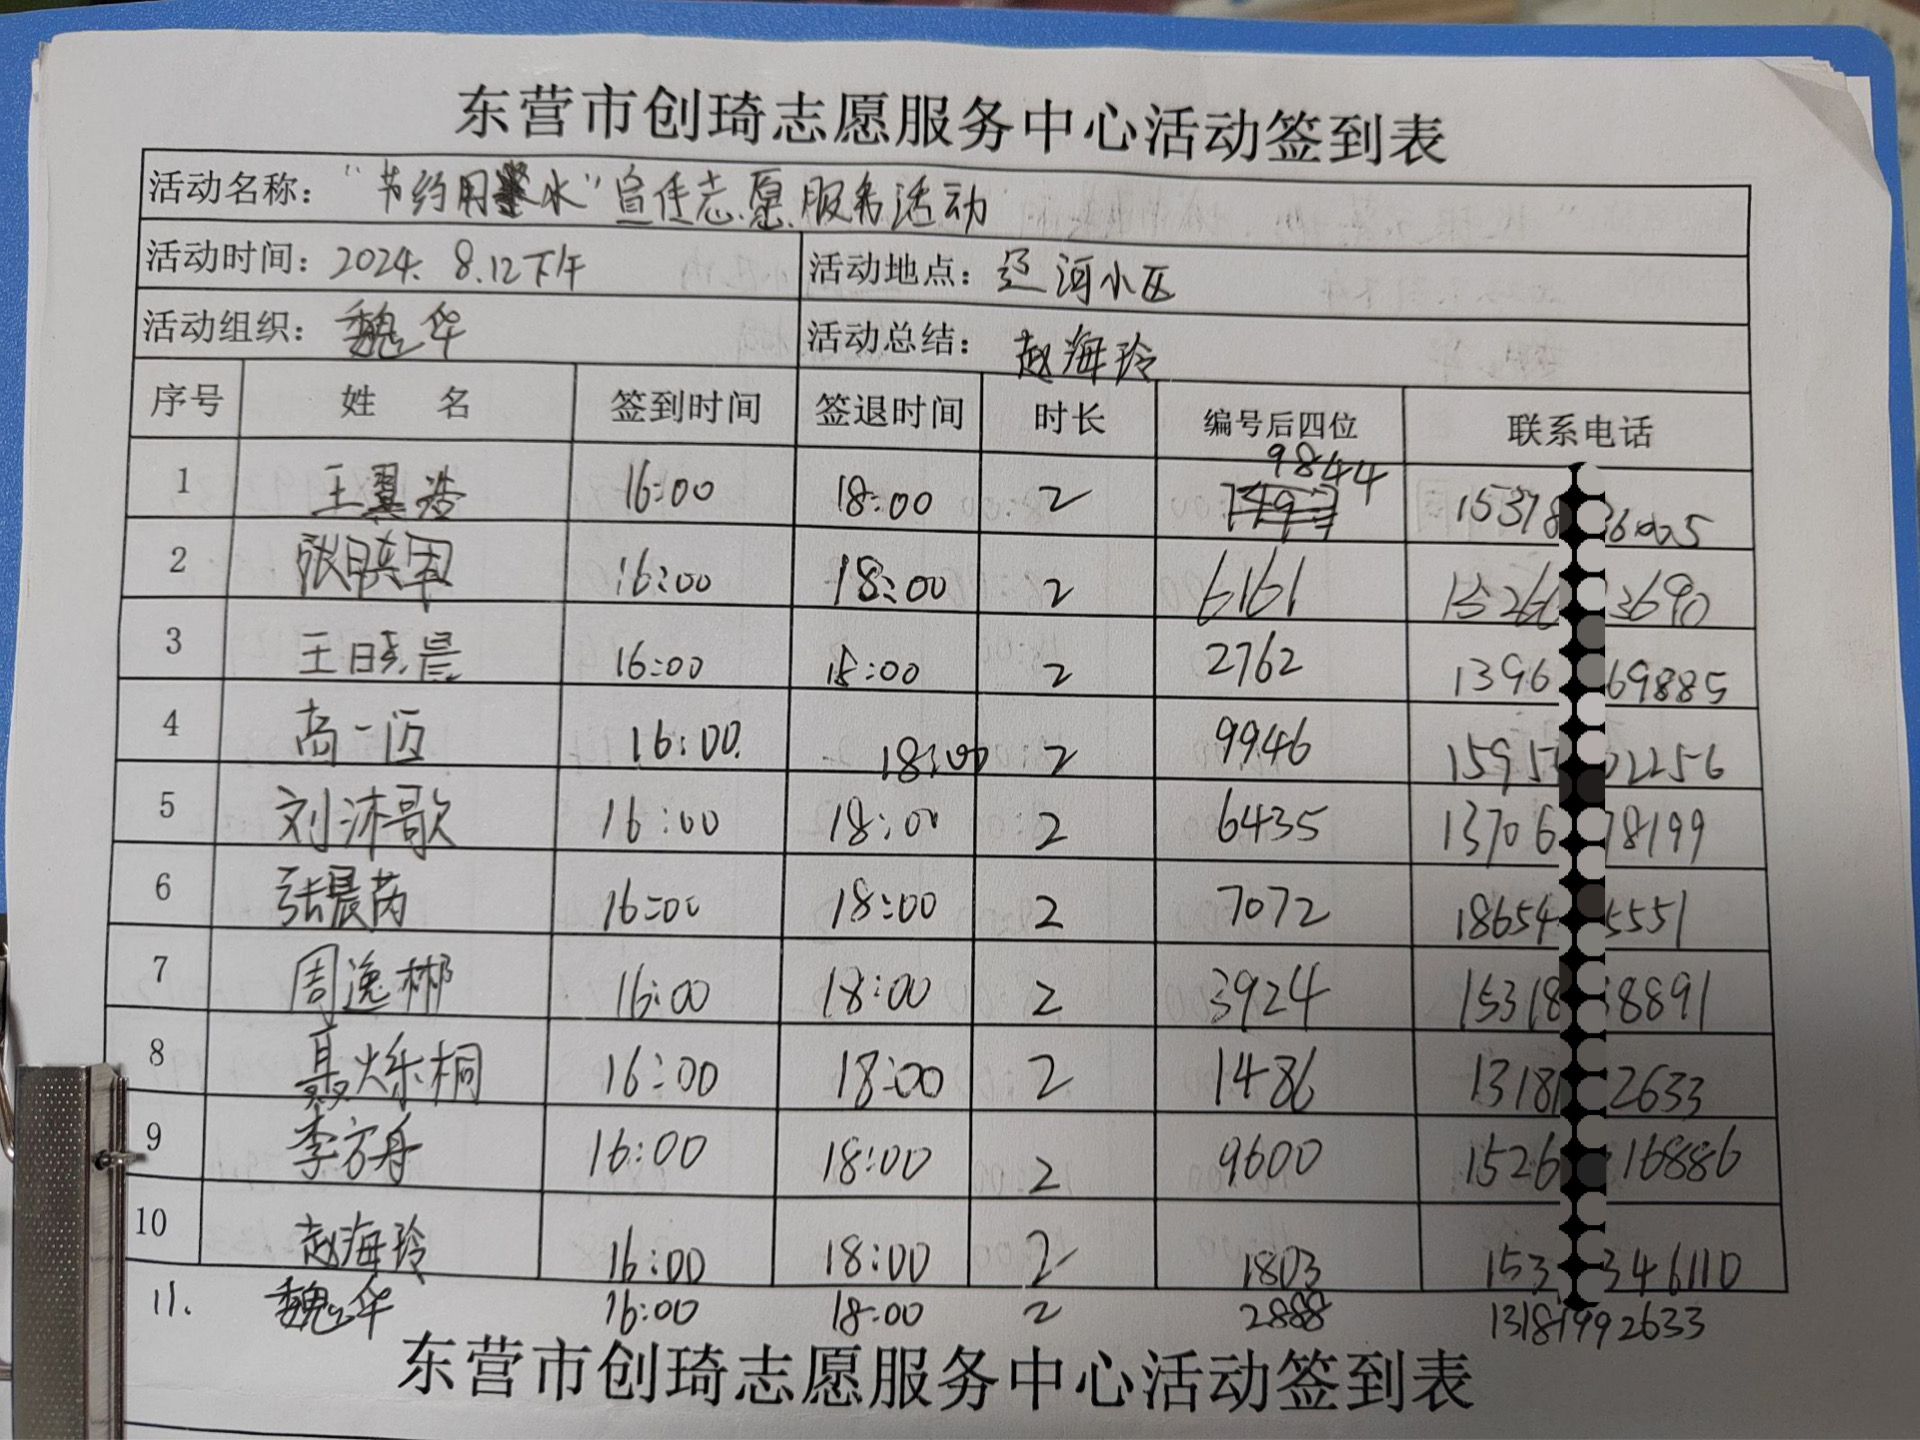 东营市创琦志愿服务中心活动签到表
活动名称：“节约用水”宣传志愿服务活动
活动时间：2024.8.12下午 活动地点：辽河小区
活动组织：魏华 活动总结：赵海玲
序号 姓名 签到时间 签退时间 时长 编号后四位 联系电话
1 王翼浩 16:00 18:00 2 9844 15318 5
2 张 16:00 18:00 2 6161 1526 3690
3 王晓晨 16:00 18:00 2 2762 1396 69885
4 高一迈 16:00 18:00 2 9946 1595 02256
5 刘沐歌 16:00 18:00 2 6435 13706 78199
6 张晨芮 16:00 18:00 2 7072 18654 5551
7 周逸彬 16:00 18:00 2 3924 15318 8891
8 聂烁桐 16:00 18:00 2 1486 1318 2633
9 李方舟 16:00 18:00 2 9600 1526 16886
10 赵海玲 16:00 18:00 2 1803 153 346110
11. 魏华 16:00 18:00 2 2888 13181992633
东营市创琦志愿服务中心活动签到表